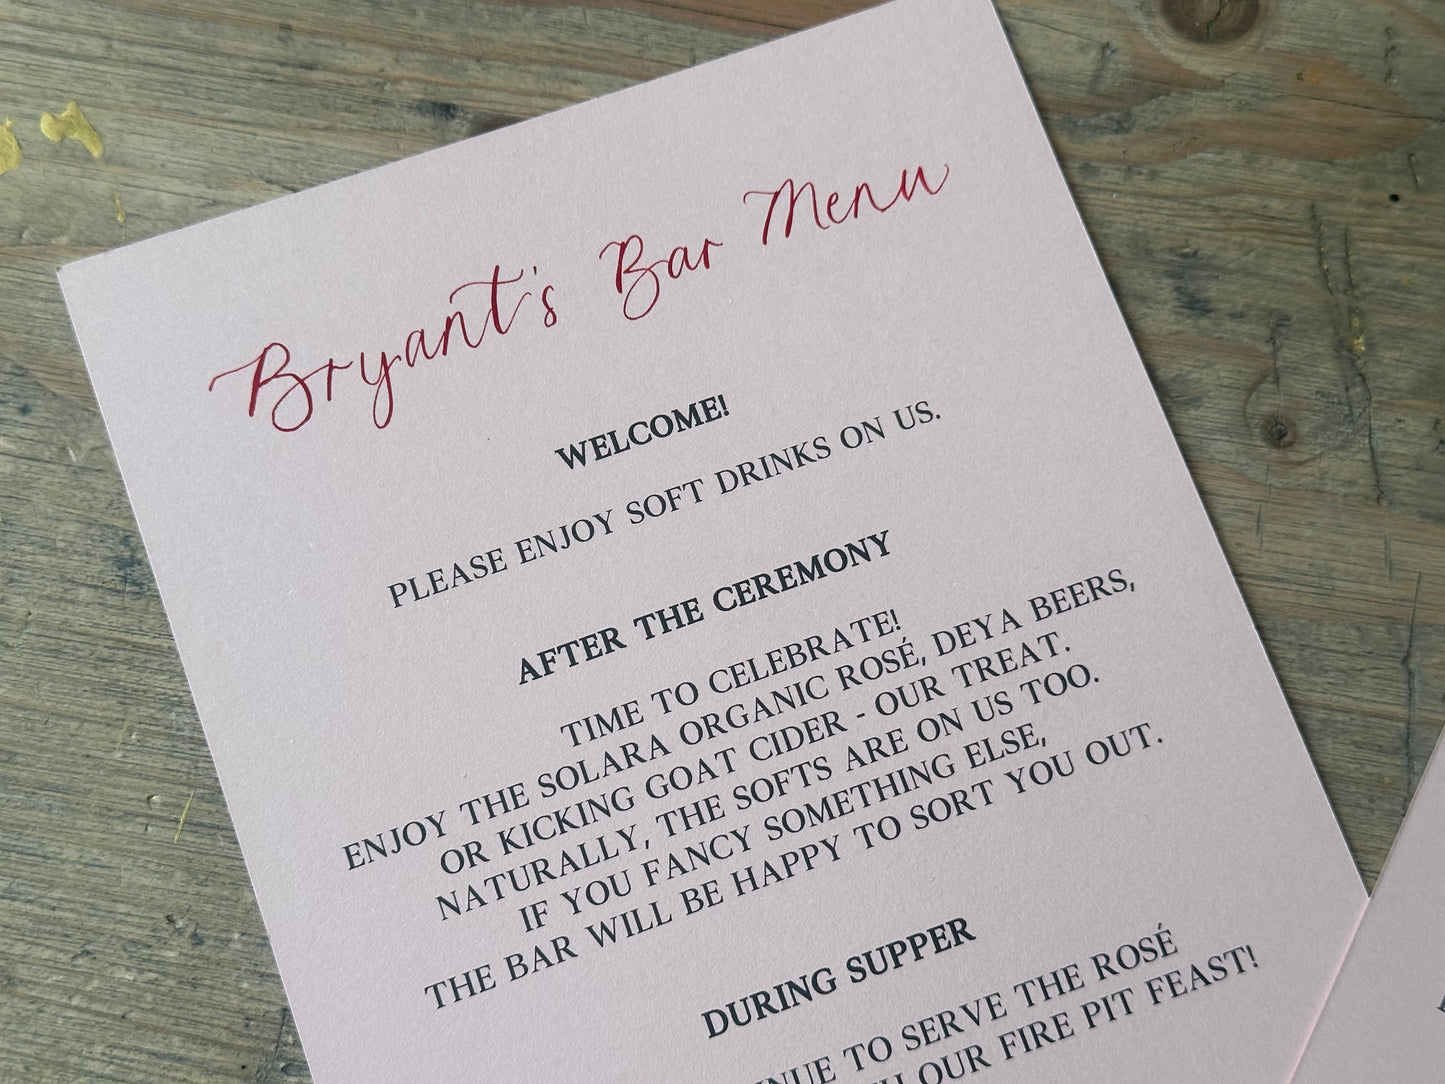 Bryant's Bar Menu
WELCOME!
PLEASE ENJOY SOFT DRINKS ON US.
AFTER THE CEREMONY
TIME TO CELEBRATE!
ENJOY THE SOLARA ORGANIC ROSÉ, DEYA BEERS,
OR KICKING GOAT CIDER - OUR TREAT.
NATURALLY, THE SOFTS ARE ON US TOO.
IF YOU FANCY SOMETHING ELSE,
THE BAR WILL BE HAPPY TO SORT YOU OUT.
DURING SUPPER
TO SERVE THE ROSÉ
OUR FIRE PIT FEAST!